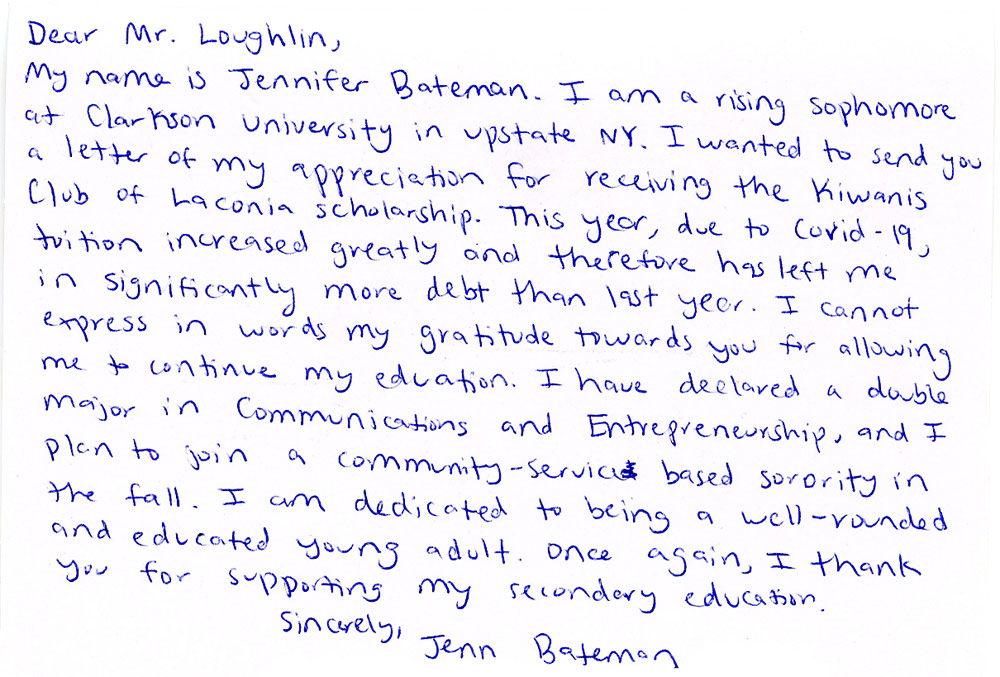 Dear Mr. Loughlin,
My name is Jennifer Bateman. I am a rising sophomore
at Clarkson University in upstate NY. I wanted to send you
a letter of my appreciation for receiving the Kiwanis
Club of Laconia scholarship. This year, due to Covid-19,
tuition increased greatly and therefore has left me
in significantly more debt than last year. I cannot
express in words my gratitude towards you for allowing
me to continue my edvation. I have declared a double
major in Communications and Entrepreneurship, and I
plan to join a community-service based sorority in
the fall. I am dedicated to being a well-rounded
and educated young adult. Once again, I thank
you for supporting my secondary education.
Sincerely,
Jenn Bateman